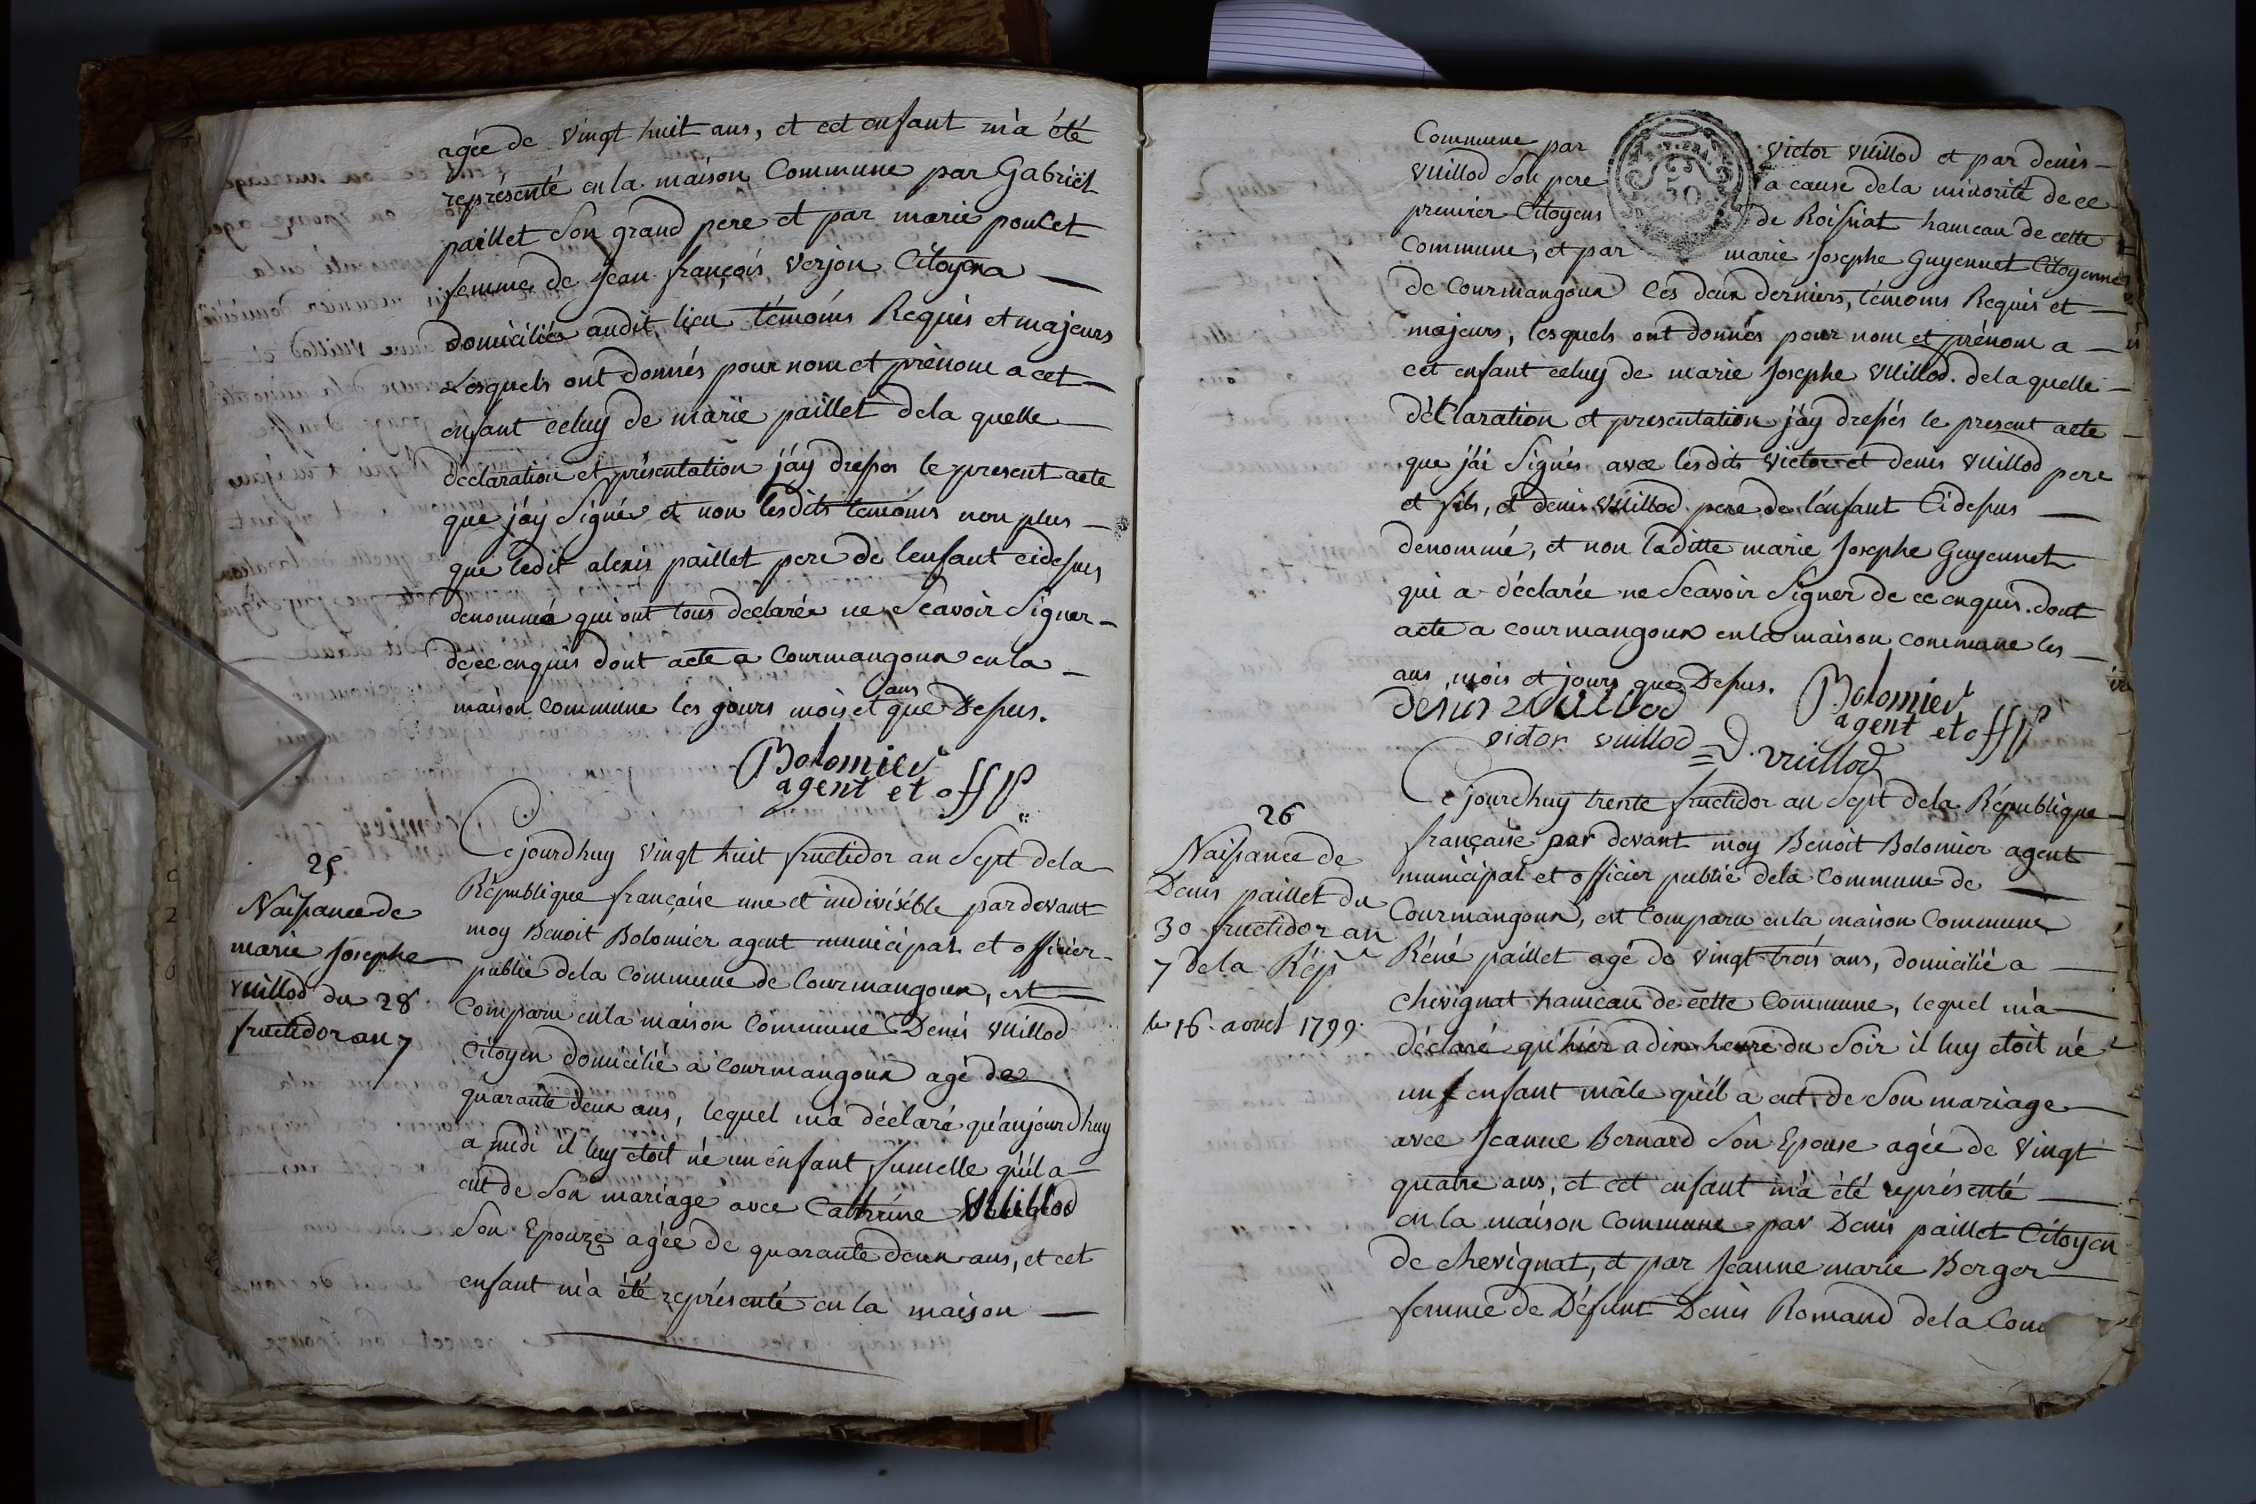 agée de vingt huit ans, et cet enfant m'a été
représenté en la maison Commune par Gabriel
paillet Son grand pere et par marie poncet
femme de Jean françois Verjon Citoyens
domiciliés audit lieu témoins Requis et majeurs
Lesquels ont donnés pour nom et prénom a cet
enfant celuy de marie paillet de la quelle
déclaration et présentation j'ay dressés le present acte
que j'ay Signé et non lesdits témoins non plus
que ledit alexis paillet pere de l'enfant cidessus
denommé qui ont tous déclarés ne Scavoir Signer
de ce enquis dont acte a Courmangoux en la
maison Commune les jours mois et ans que Dessus.
Bolomier
agent et off P
25
Naissance de
marie Josephe
Vuillod du 28
fructidor an 7
Ce jourdhuy vingt huit fructidor an Sept de la
République française une et indivisible pardevant
moy Benoit Bolomier agent municipal et officier
public de la Commune de Courmangoux, est
Comparu en la maison Commune Denis Vuillod
Citoyen domicilié a Courmangoux agé de
quarante deux ans, lequel m'a déclaré qu'aujourdhuy
a midi il luy étoit né un enfant fumelle qu'il a
eut de Son mariage avec Catherine Vuillod
Son Epouze agée de quarante deux ans, et cet
enfant m'a été représenté en la maison
Commune par Victor Vuillod et par denis
Vuillod Son pere a cause de la minorité de ce
premier Citoyens de Roissiat hameau de cette
Commune, et par marie Josephe Guyennet Citoyenne
de Courmangoux Ces deux derniers, témoins Requis et
majeurs, lesquels ont donnés pour nom et prénom a
cet enfant celuy de marie Josephe Vuillod. de la quelle
déClaration et presentation j'ay dressés le present acte
que j'ai Signés avec lesdits Victor et denis Vuillod pere
et fils, et denis Vuillod pere de l'enfant Cidessus
denommé, et non laditte marie Josephe Guyennet
qui a déclarée ne Scavoir Signer de ce enquis. dont
acte a Courmangoux en la maison commune les
ans mois et jours que Dessus.
Bolomier
agent et off P
denis vuillod
victor vuillod = D. vuillod
26
Naissance de
Denis paillet du
30 fructidor an
7 de la Rép
le 16. aoust 1799.
Ce jourdhuy trente fructidor an Sept de la République
française par devant moy Benoit Bolomier agent
municipal et officier public de la Commune de
Courmangoux, est Comparu en la maison Commune
Réné paillet agé de vingt trois ans, domicilié a
Chevignat hameau de cette Commune, lequel m'a
déclaré qu'hier a dix heure du Soir il luy étoit né
un enfant mâle qu'il a eut de Son mariage
avec Jeanne Bernard Son Epouse agée de vingt
quatre ans, et cet enfant m'a été représenté
en la maison Commune par Denis paillet Citoyen
de chevignat, et par Jeanne marie Berger
femme de Défunt Denis Romand de la Com